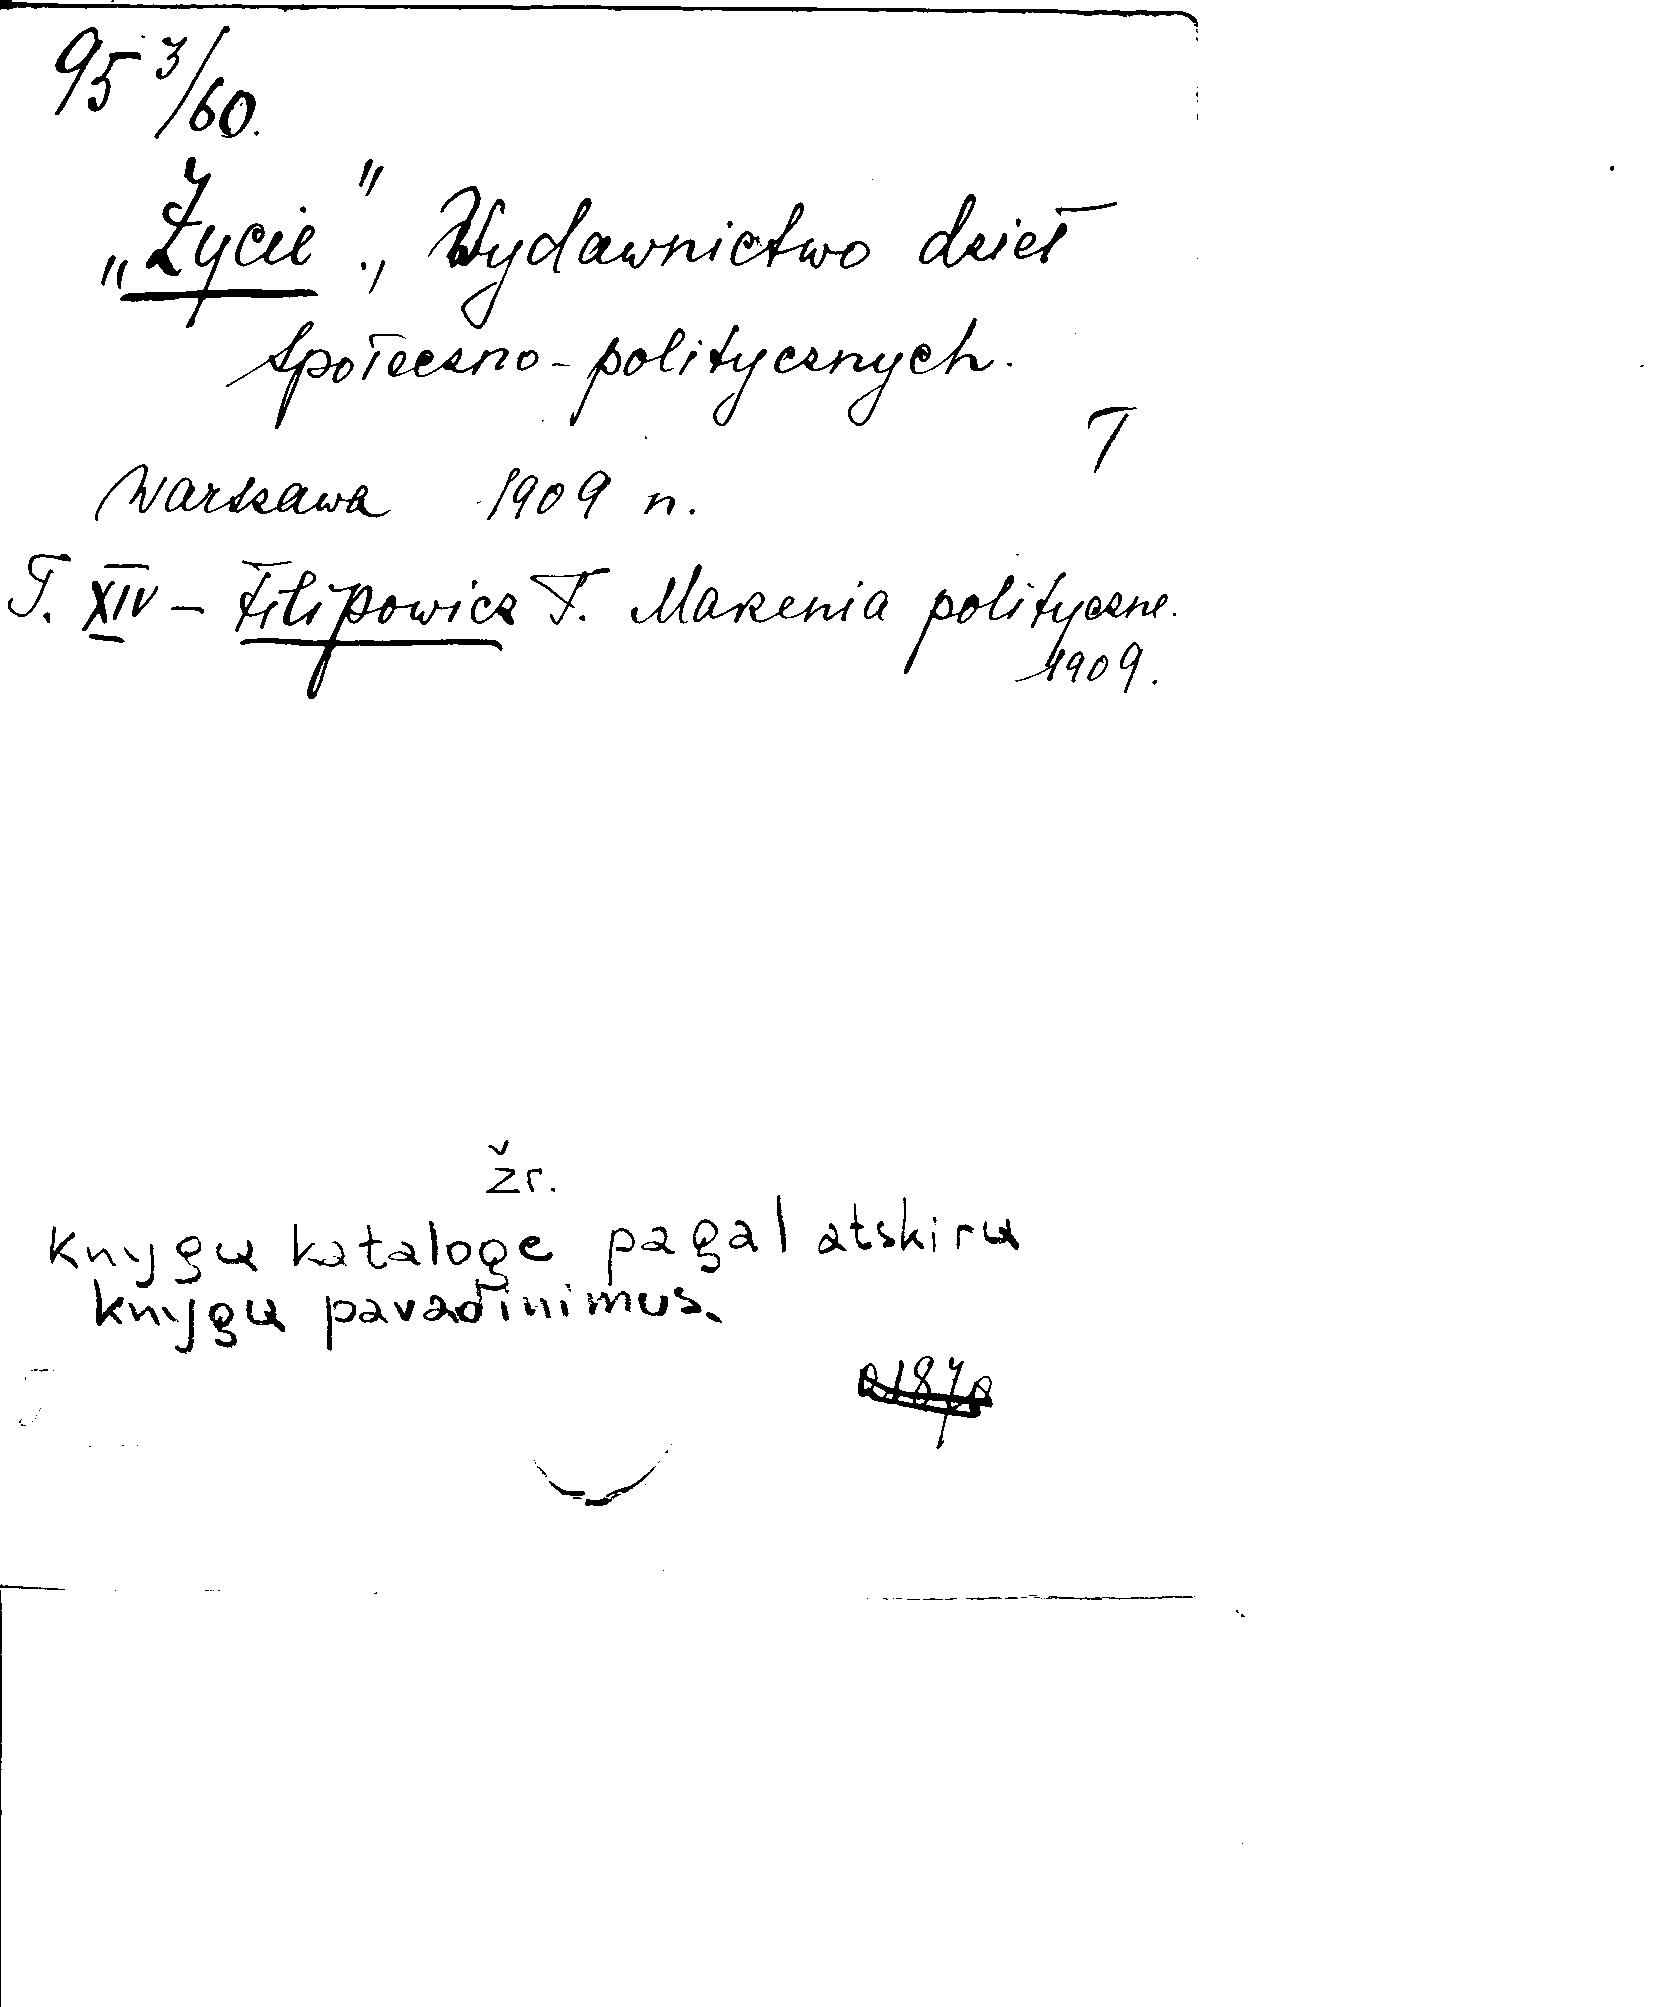 95 3/60.
„Życie”., Wydawnictwo dzieł
społeczno-politycznych.
T
Warszawa 1909 n.
T. XIV – Filipowicz T. Marzenia polityczne.
1909.
žr.
knygų kataloge pagal atskirų
knygų pavadinimus.